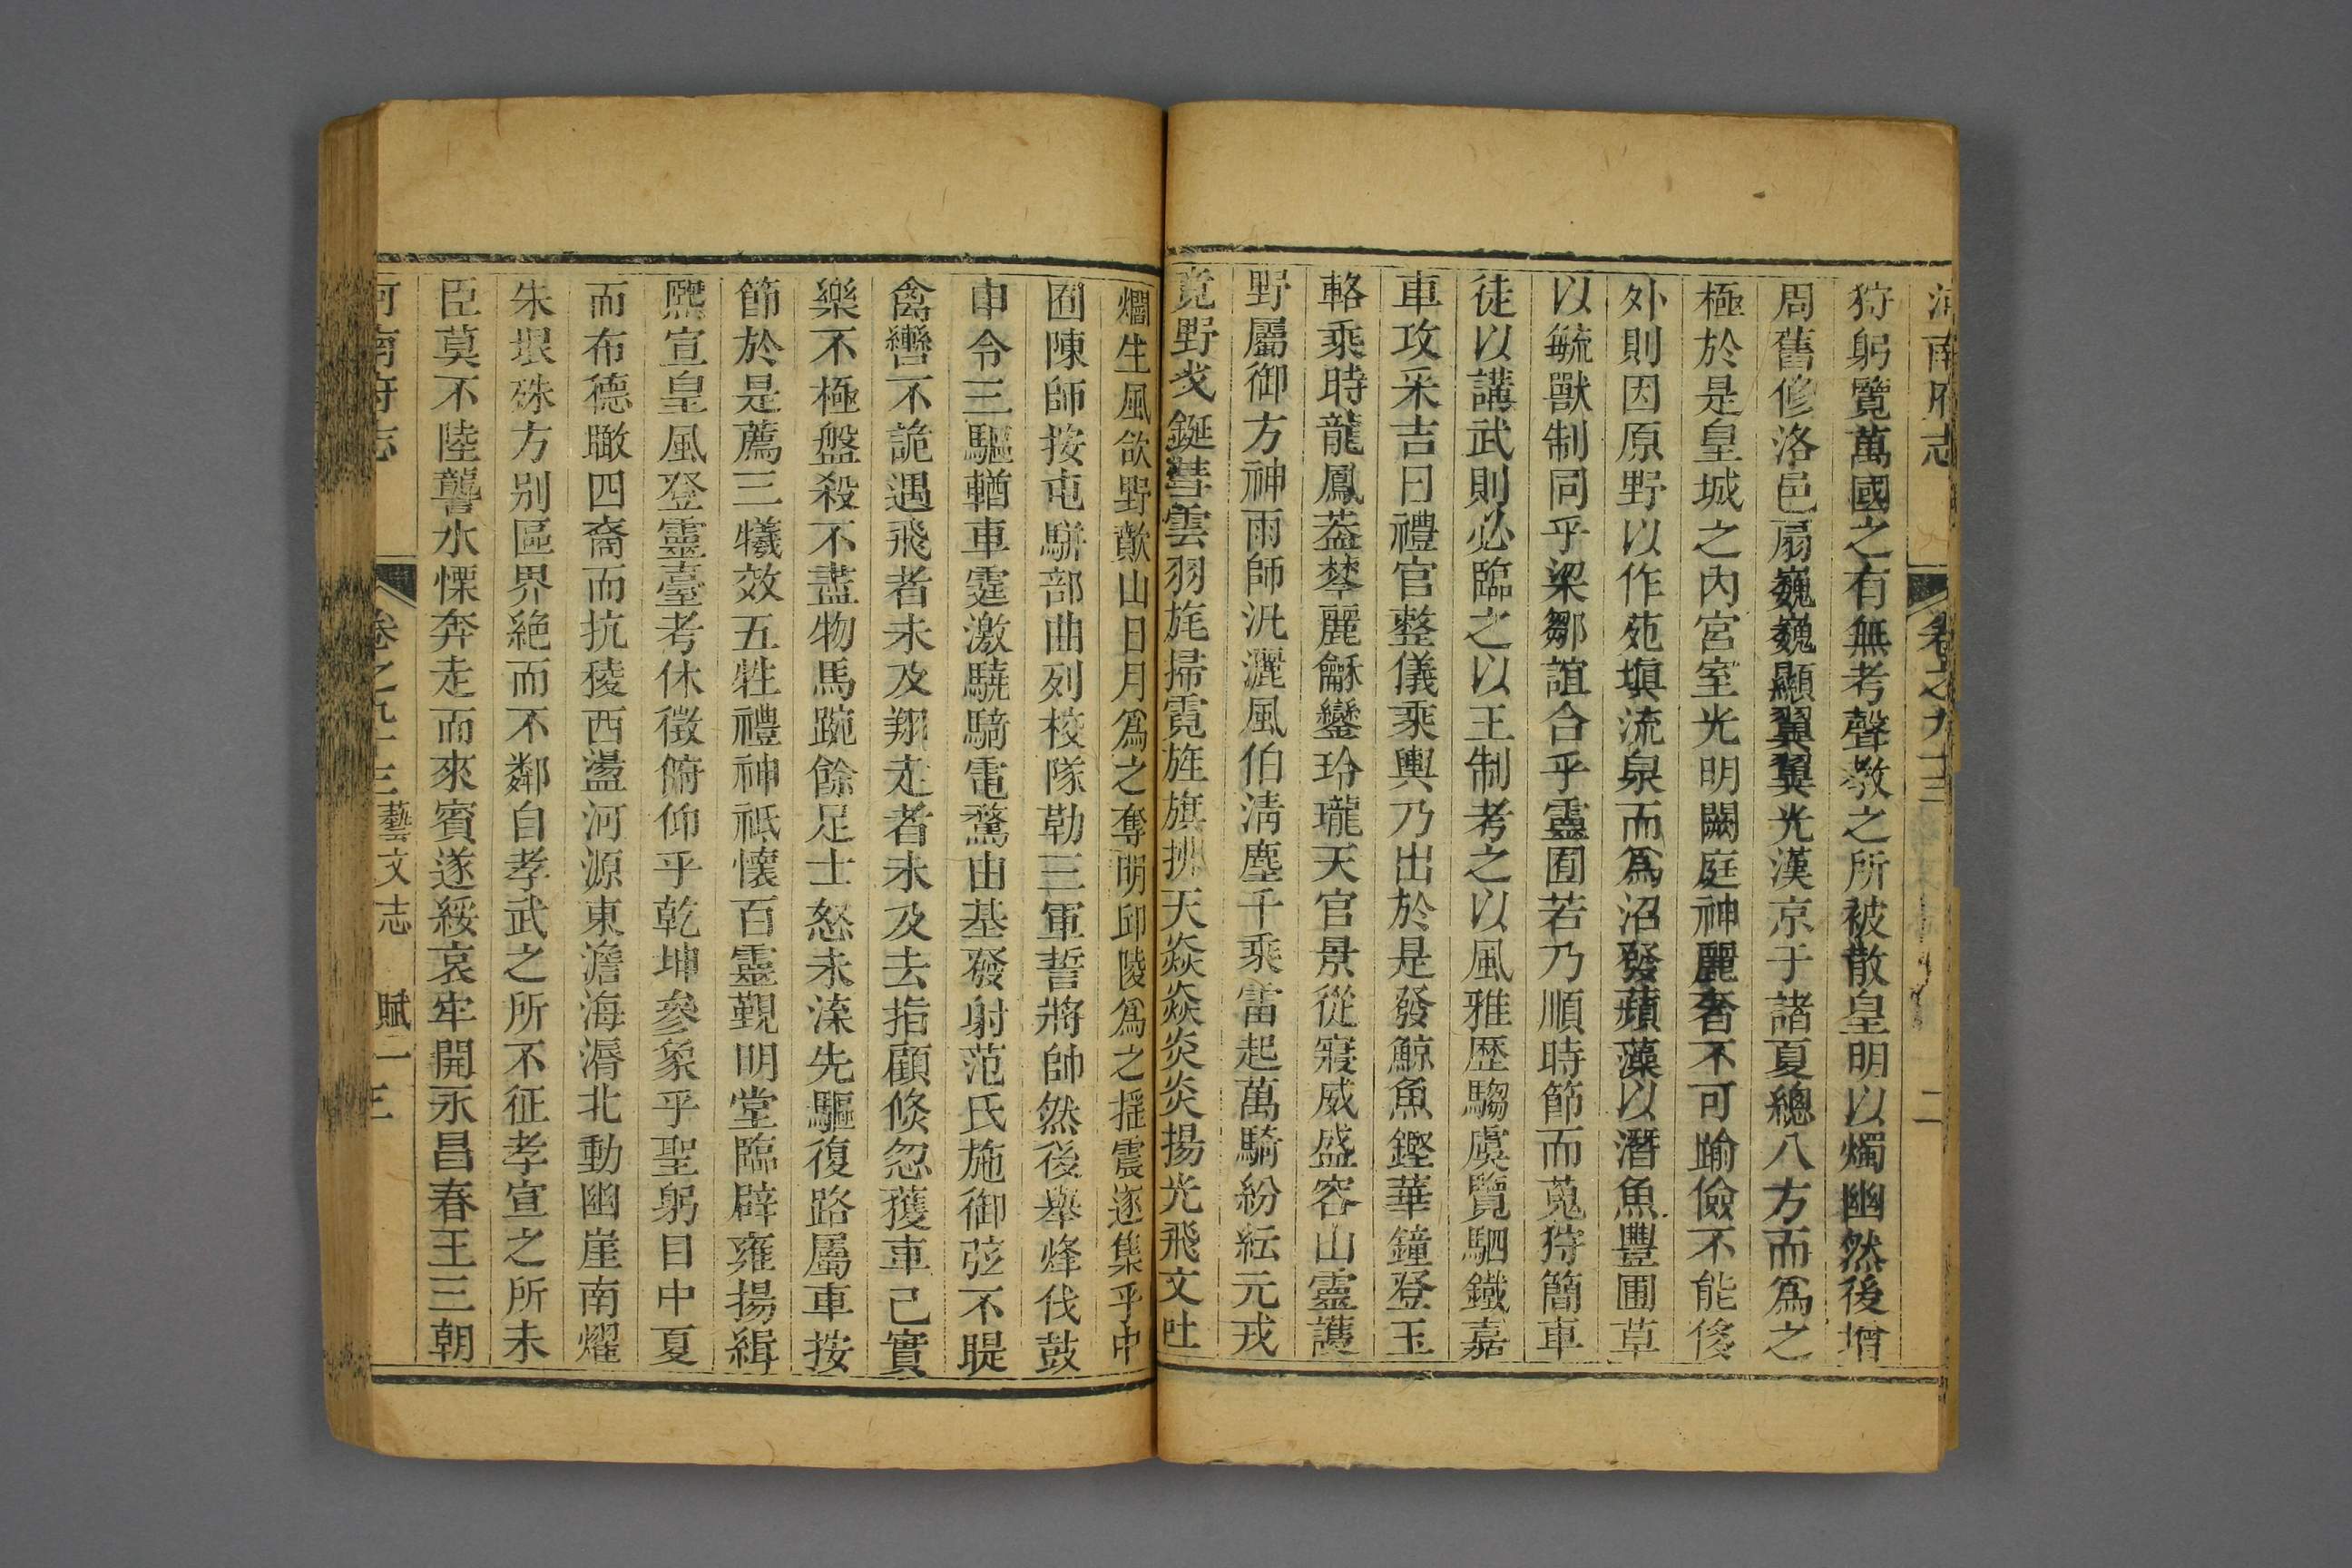 河南府志 卷之九十三 二
狩躬覽萬國之有無考聲教之所被散皇明以燭幽然後增
周舊修洛邑扇巍巍顯翼翼光漢京于諸夏總八方而爲之
極於是皇城之內宮室光明闕庭神麗奢不可踰儉不能侈
外則因原野以作苑塡流泉而爲沼發蘋藻以潛魚豐圃草
以毓獸制同乎梁鄒誼合乎靈囿若乃順時節而蒐狩簡車
徒以講武則必臨之以王制考之以風雅歷騶虞覽駟鐵嘉
車攻采吉日禮官整儀乘輿乃出於是發鯨魚鏗華鐘登玉
輅乘時龍鳳葢棽麗龢鑾玲瓏天官景從寢威盛容山靈護
野屬御方神雨師汎灑風伯淸塵千乘雷起萬騎紛紜元戎
竟野戈鋋彗雲羽旄掃霓旌旗拂天焱焱炎炎揚光飛文吐
爓生風欱野歕山日月爲之奪明邱陵爲之搖震遂集乎中
囿陳師按屯駢部曲列校隊勒三軍誓將帥然後舉烽伐鼓
申令三驅輶車霆激驍騎電騖由基發射范氏施御弦不睼
禽轡不詭遇飛者未及翔走者未及去指顧倏忽獲車已實
樂不極盤殺不盡物馬踠餘足士怒未渫先驅復路屬車按
節於是薦三犧效五牲禮神祇懷百靈覲明堂臨辟雍揚緝
熈宣皇風登靈臺考休徵俯仰乎乾坤參象乎聖躬目中夏
而布德瞰四裔而抗稜西盪河源東澹海漘北動幽崖南燿
朱垠殊方別區界絶而不鄰自孝武之所不征孝宣之所未
臣莫不陸讋水慄奔走而來賓遂綏哀牢開永昌春王三朝
河南府志 卷之九十三 藝文志 賦一 三